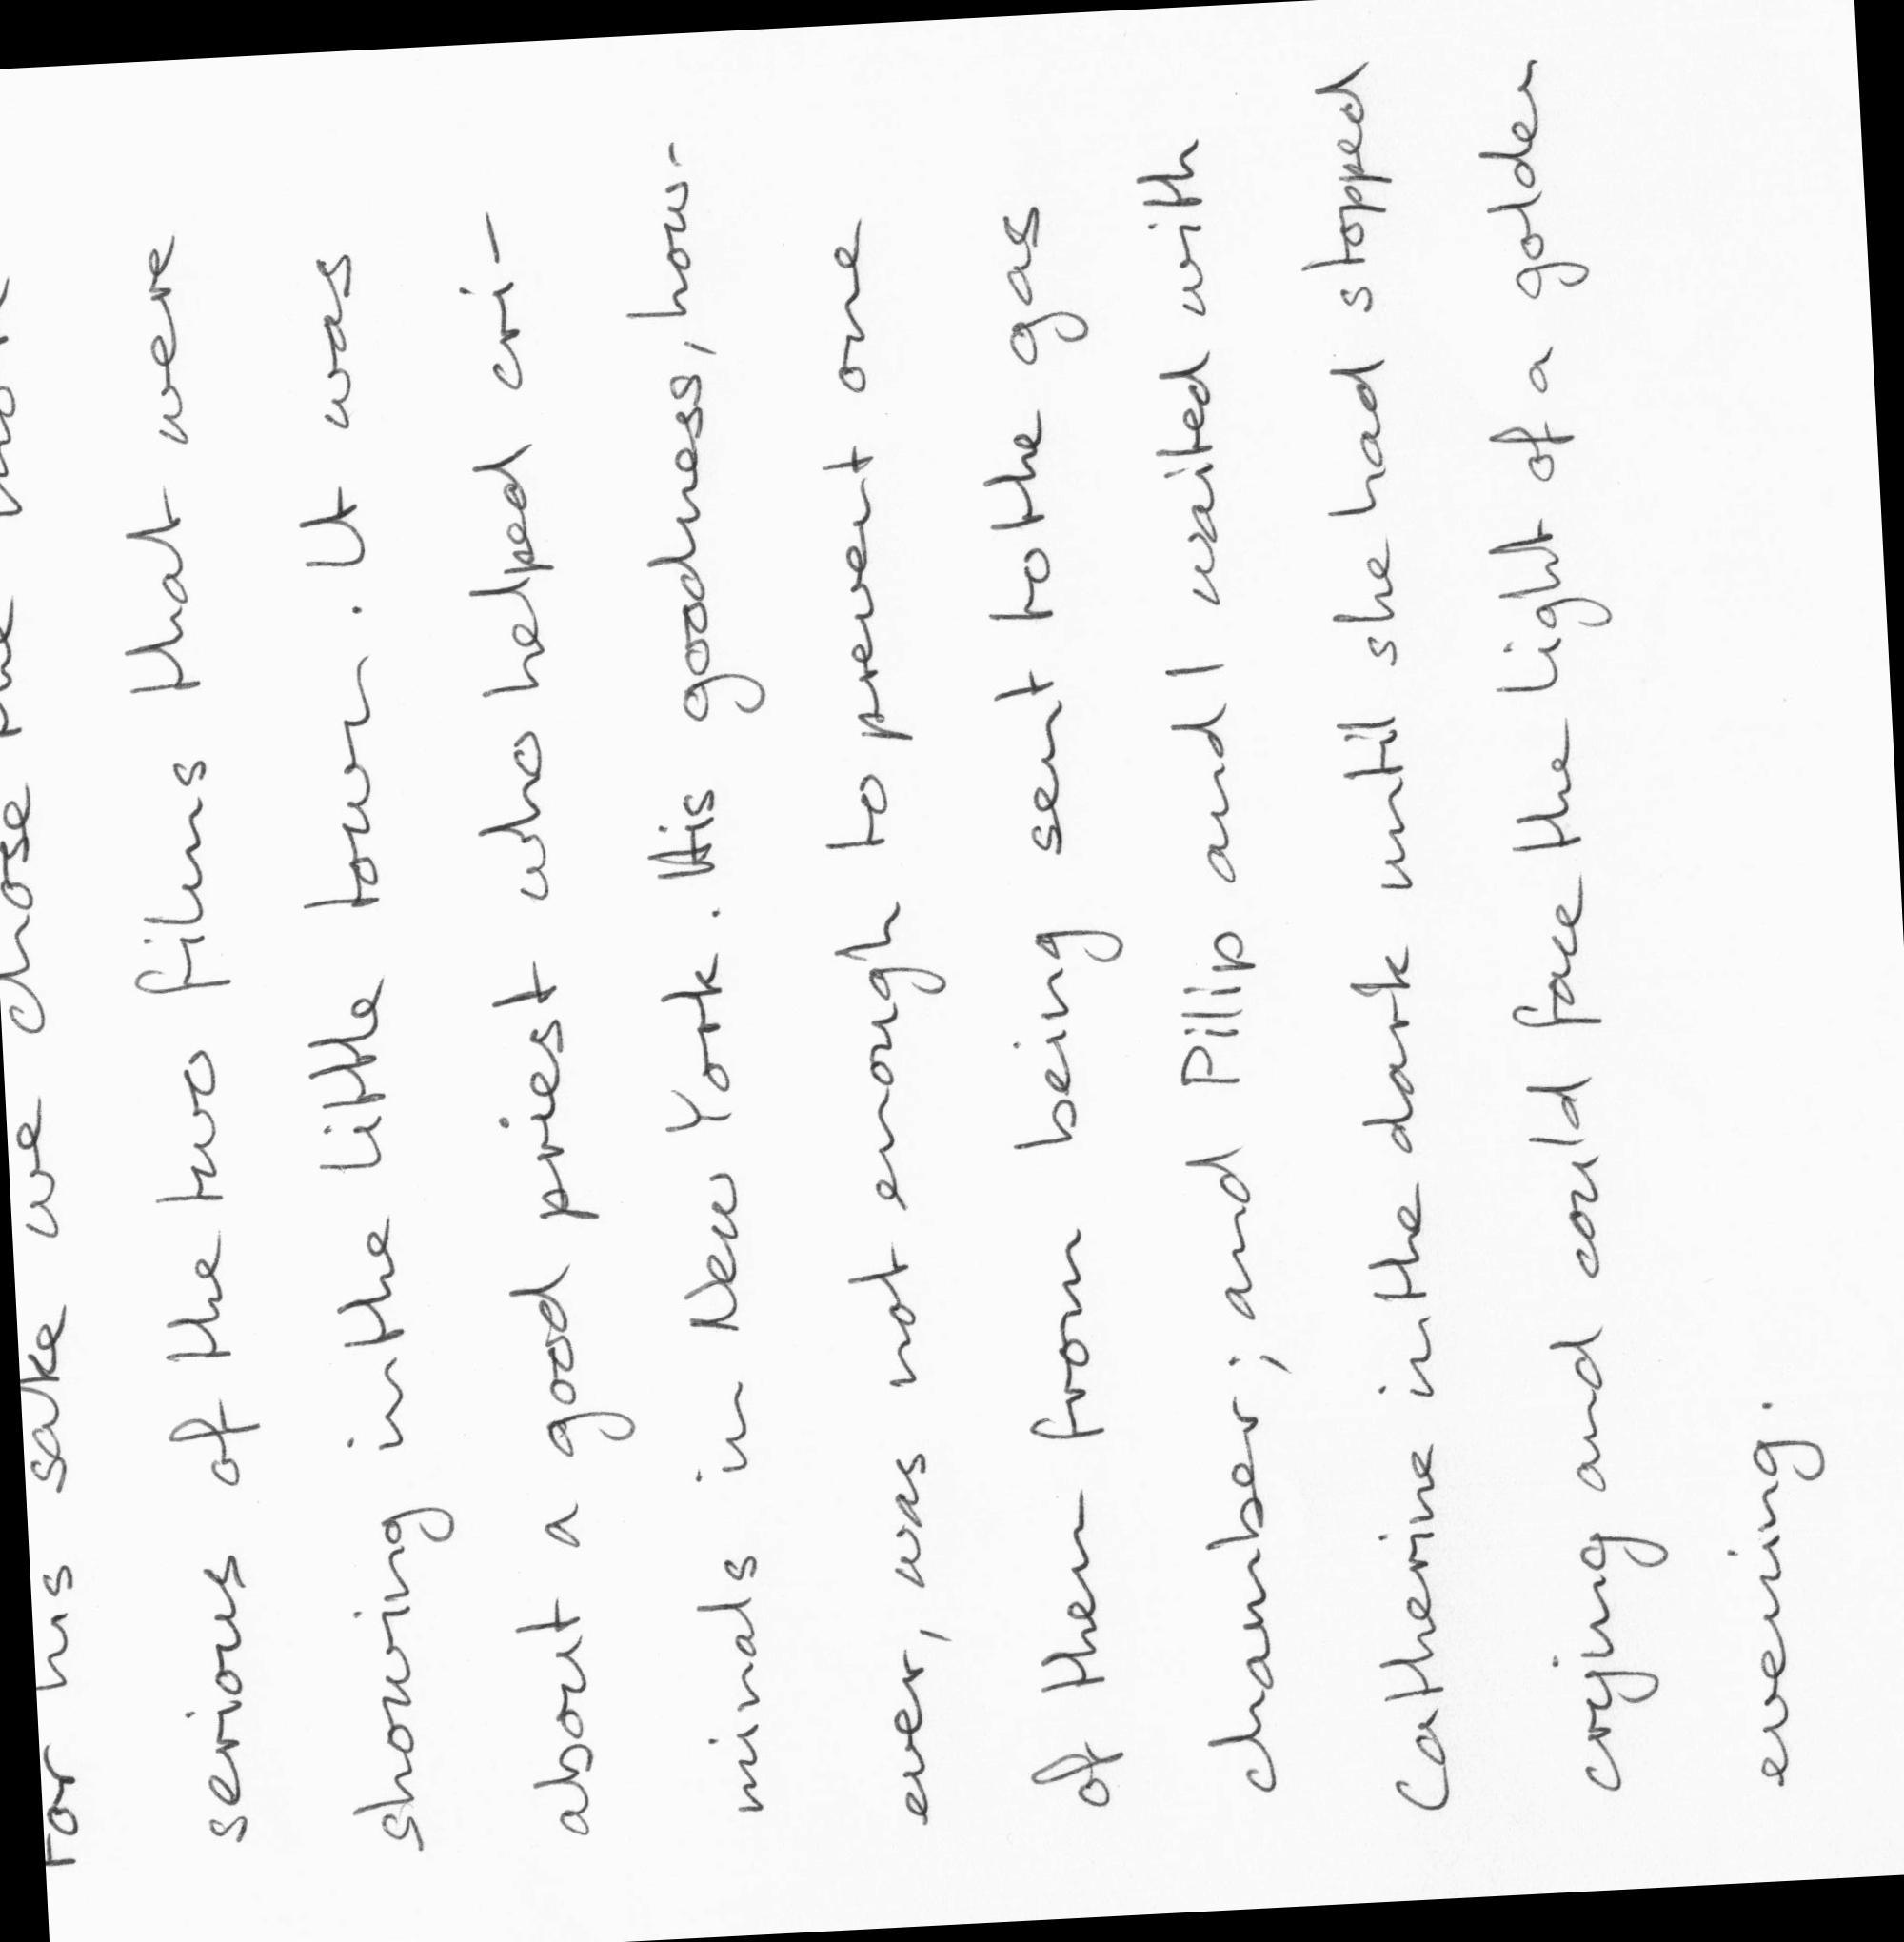 For his sake we chose the more
serious of the two films that were
showing in the little town. It was
about a good priest who helped cri-
minals in New York. His goodness, how-
ever, was not enough to prevent one
of them from being sent to the gas
chamber; and Pillip and I waited with
Catherine in the dark until she had stopped
crying and could face the light of a golden
evening.